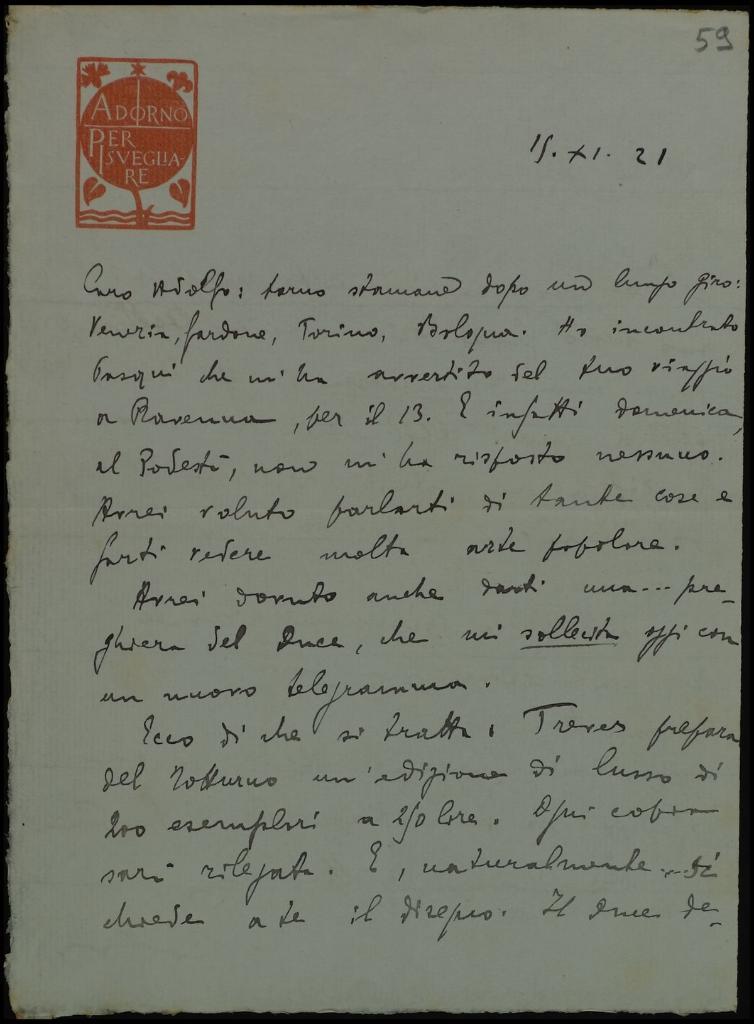 59
ADORNO
PER
ISVEGLIA-
RE
15. XI. 21
Caro Adolfo: torno stamane dopo un lungo giro:
Venezia, Gardone, Torino, Bologna. Ho incontrato
Pasqui che m'ha avvertito del tuo viaggio
a Ravenna, per il 13. E infatti domenica,
al Podestà, non m'ha risposto nessuno.
Avrei voluto parlarti di tante cose e
farti vedere molta arte popolare.
Avrei dovuto anche darti una... pre-
ghiera del Duce, che mi sollecita oggi con
un nuovo telegramma.
Ecco di che si tratta. Treves prepara
del Notturno un'edizione di lusso di
200 esemplari a 250 lire. Ogni copia
sarà rilegata. E, naturalmente... si
chiede a te il disegno. Il Duce de-